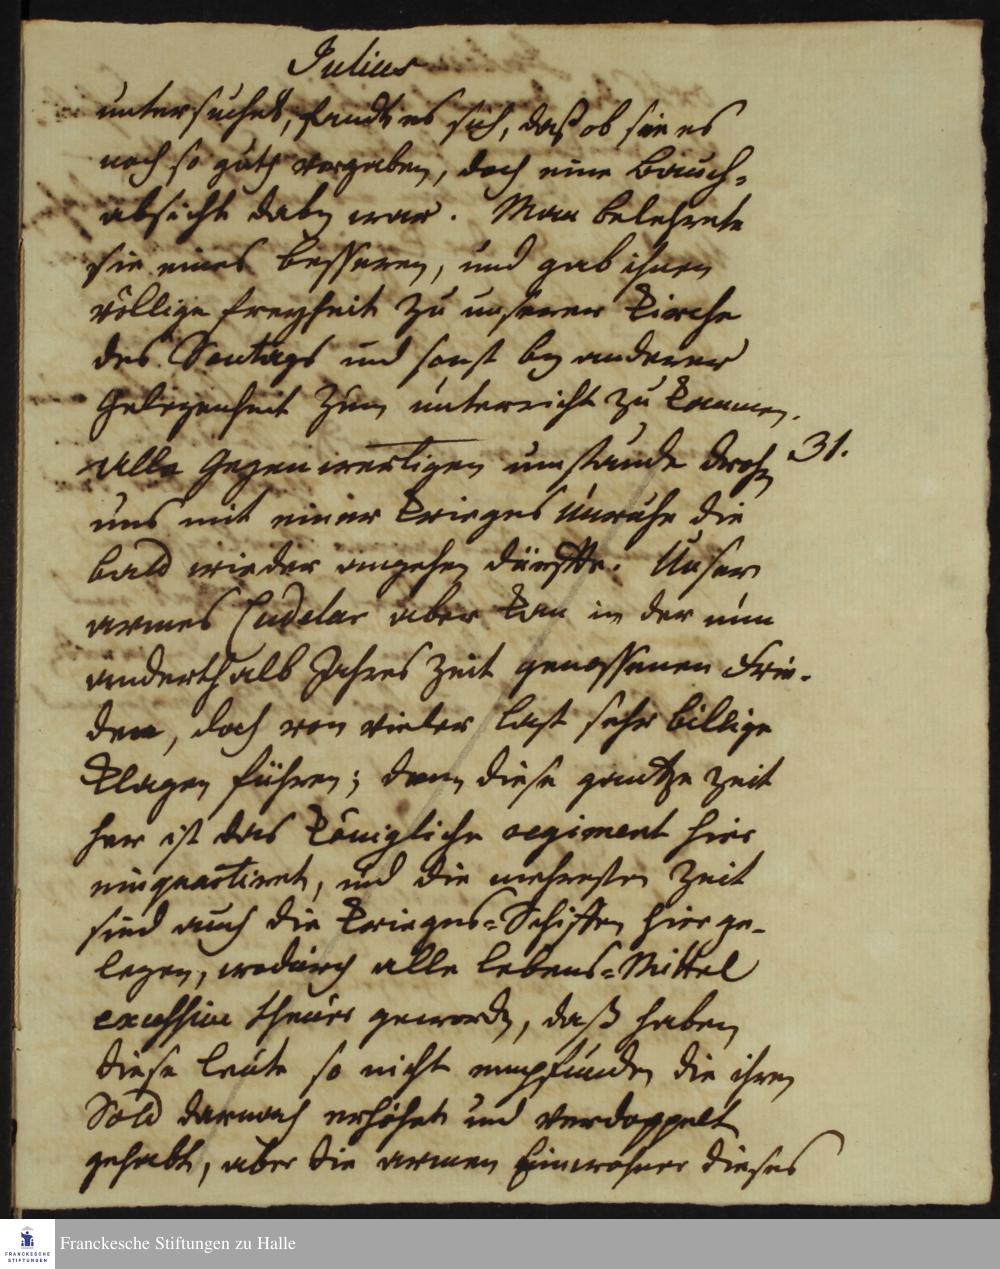 Julius
untersuchet, fandts es sich, daß ob sie es
noch so guth vorgaben, doch eine Bauch=
absicht dabey war. Man belehrete
sie eines besseren, und gab ihnen
völlige freyheit zu unserer Kirche
des Sontags und sonst bey anderer
Gelegenheit zum unterricht zu kommen.
Alle Gegenwertigen umstände drohen 31.
uns mit einer Krieges Unruhe die
bald wieder angehen dürffte. Unser
armes Cudelur aber kan in der nun
anderthalb Jahres Zeit genossenen Frie-
den, doch von vieler last sehr billige
Klagen führen; denn diese gantze Zeit
her ist das Königliche regiment hier
einquartiret, und die mehresten Zeit
sind auch die Krieges=Schiffen hier ge-
legen, wodurch alle lebens=Mittel
excessive theuer geworden, daß haben
diese leute so nicht empfunden die ihren
Sold darnach erhöhet und verdoppelt
gehabt, aber die armen Einwohner dieses
Franckesche Stiftungen zu Halle
FRANCKESCHE
STIFTUNGEN